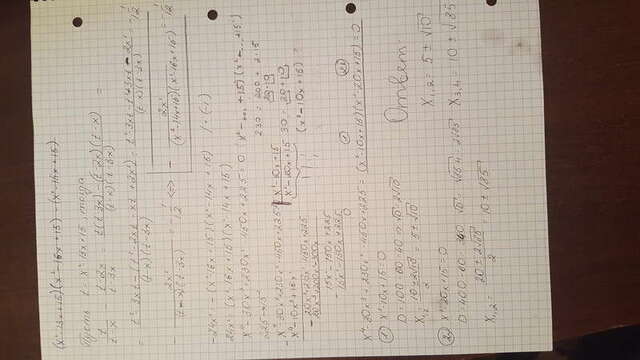 Пусть t = x² - 13x + 15, тогда
t/(t-x) - (t-2x)/(t-3x) = (t(t-3x) - (t-2x)(t-x))/((t-x)(t-3x)) =
= (t² - 3xt - (t² - 2xt - xt + 2x²))/((t-x)(t-3x)) = (t² - 3xt - t² + 3xt - 2x²)/((t-x)(t-3x)) = -1/12
- 2x²/((t-x)(t-3x)) = -1/12 <=> - 2x²/((x²-14x+15)(x²-16x+15)) = -1/12
-24x² = -(x²-16x+15)(x²-14x+15) | ·(-1)
24x² = (x²-16x+15)(x²-14x+15)
x⁴-30x³+230x²-450x+225 = 0 (x²-...+15)(x²-...15)
225 = 15²
230 = 200 + 2·15
20·10
30 = 20+10
(x²-10x+15)
x⁴-30x³+230x²-450x+225 | x²-10x+15
x⁴-10x³+15x² x²-20x+15
-20x³+200x²-300x
15x²-150x+225
15x²-150x+225
0
x⁴-30x³+230x²-450x+225 = (x²-10x+15)(x²-20x+15) = 0
① x²-10x+15 = 0
D = 100-60 = 40 => √D = 2√10
x₁,₂ = (10 ± 2√10)/2 = 5 ± √10
② x²-20x+15 = 0
D = 400-60 = 340 √D = √85·4 = 2√85
x₁,₂ = (20 ± 2√85)/2 = 10 ± √85
Ответ:
x₁,₂ = 5 ± √10
x₃,₄ = 10 ± √85